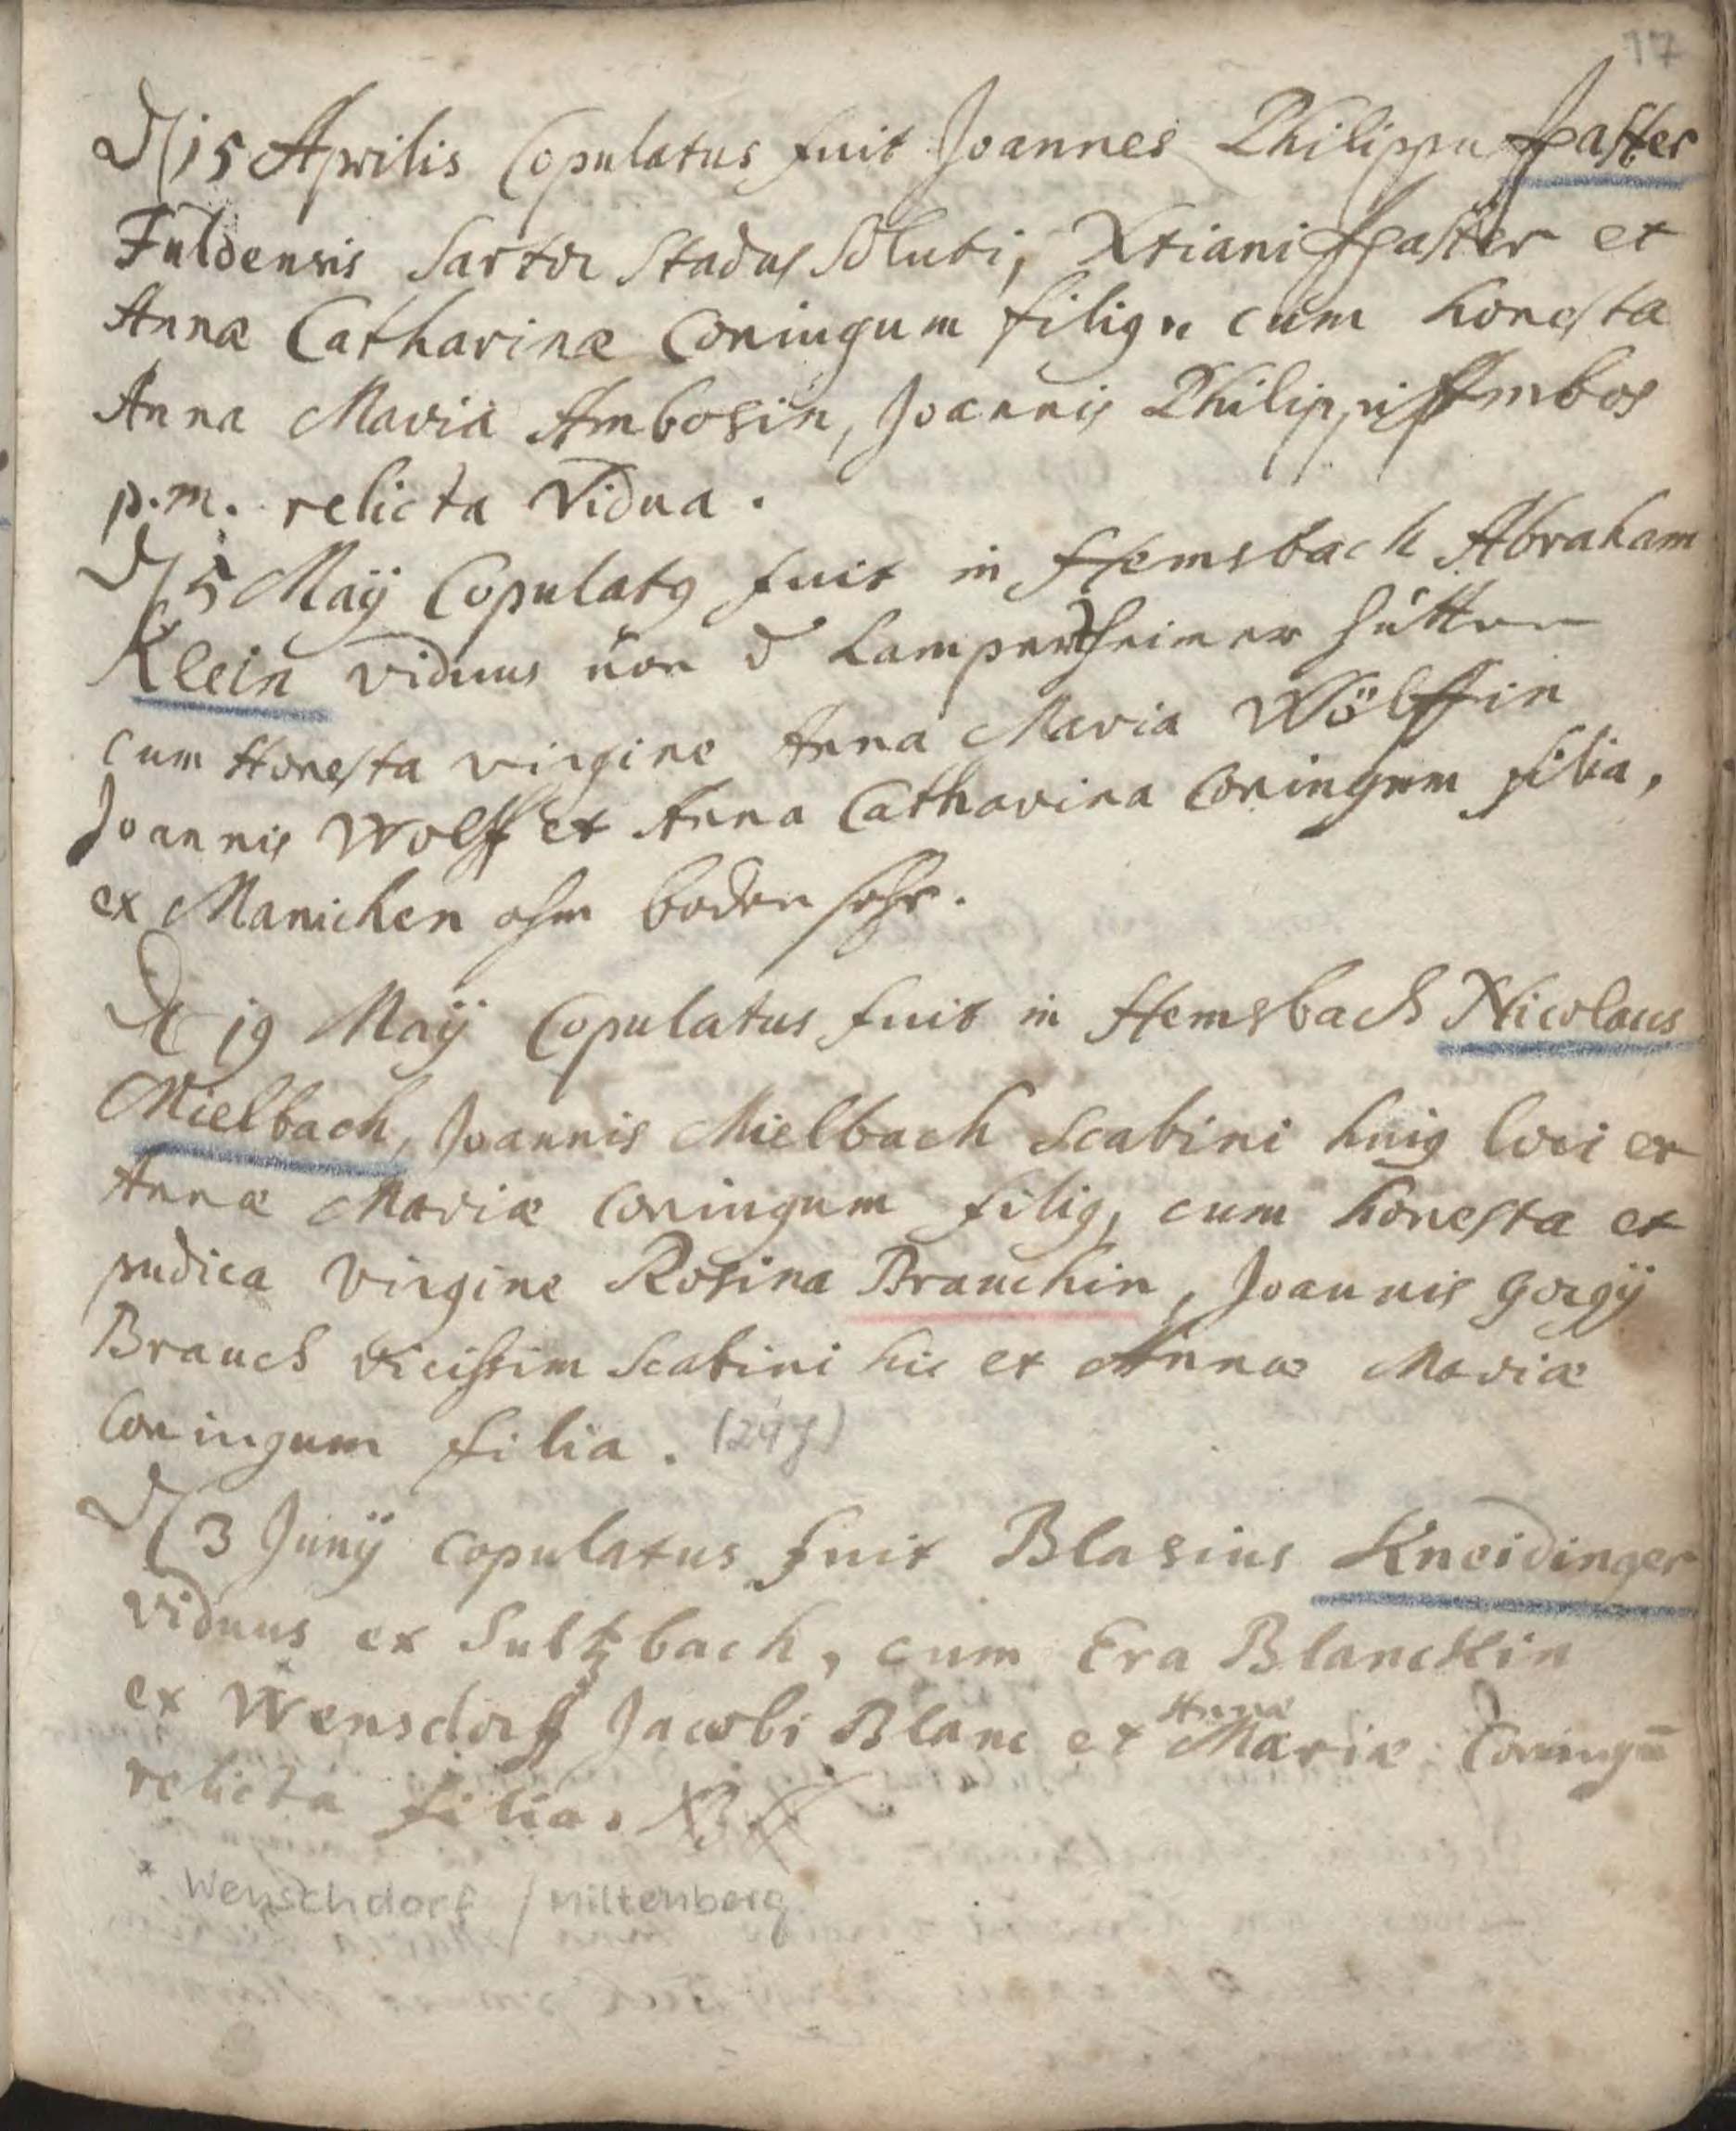 17
D 15 Aprilis Copulatus fuit Joannes Philippus Paster
Fuldensis Sartor Status Soluti, Xtiani Paster et
Annæ Catharinæ Coniugum filig cum honesta
Anna Maria Ambosin, Joannis Philippi Ambos
p.m. relicta Vidua.
D 5 Maÿ Copulatg fuit in Hemsbach Abraham
Klein viduus von d Lampertheimer hütten
cum Honesta virgine Anna Maria Wölffin
Joannis Wolff et Anna Catharina Coniugum filia,
ex Manichen
D 19 Maÿ Copulatus fuit in Hemsbach Nicolaus
Mielbach, Joannis Mielbach Scabini huig loci et
Annæ Mariæ Coniugum filig, cum honesta et
pudica Virgine Rosina Brauchin, Joannis Georgÿ
Brauch vicissim Scabini hic et Annæ Mariæ
Coniugum filia.
D 3 Junÿ copulatus fuit Blasius Kneidinger
viduus ex Sultzbach, cum Eva Blanckin
ex Wensdorff Jacobi Blanc et Annæ Mariæ Coniugū
relicta filia.
* Wenschdorf / Miltenberg